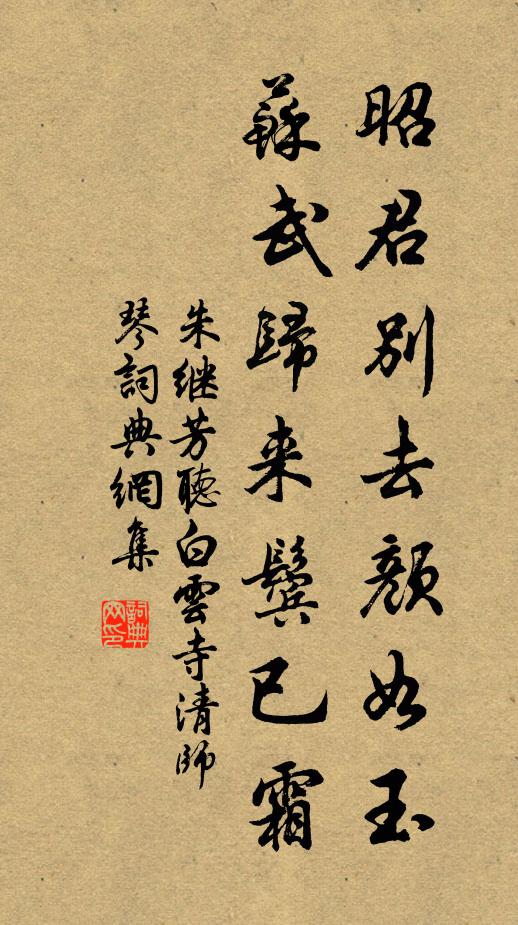 昭君別去顏如玉
蘇武歸来鬢已霜
朱继芳聽白雲寺清師
琴詞典網集
詞典网印